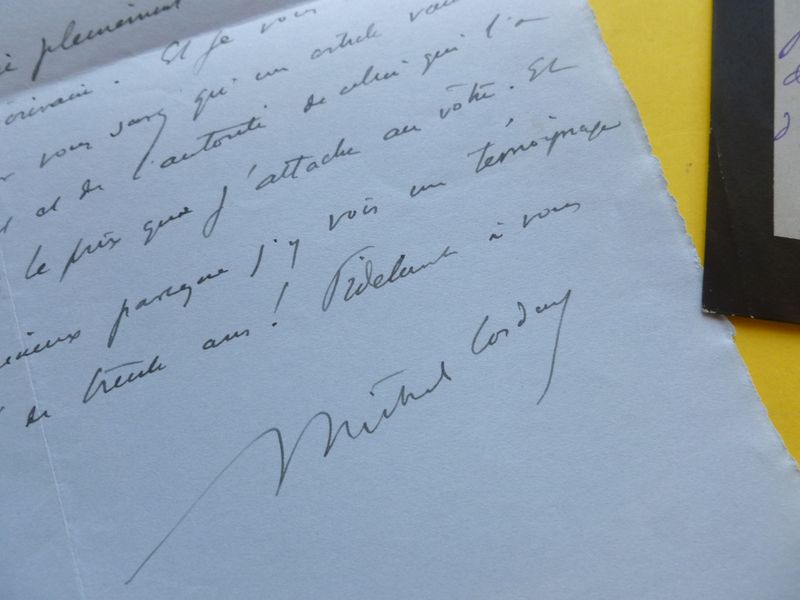 pleinement
écrivain. Et je vous
vous savez qu'un article vaut
et de l'autorité de celui qui l'a
le prix que j'attache au vôtre. Et
parce que j'y vois un témoignage
de trente ans! Fidèlement à vous
Michel Corday